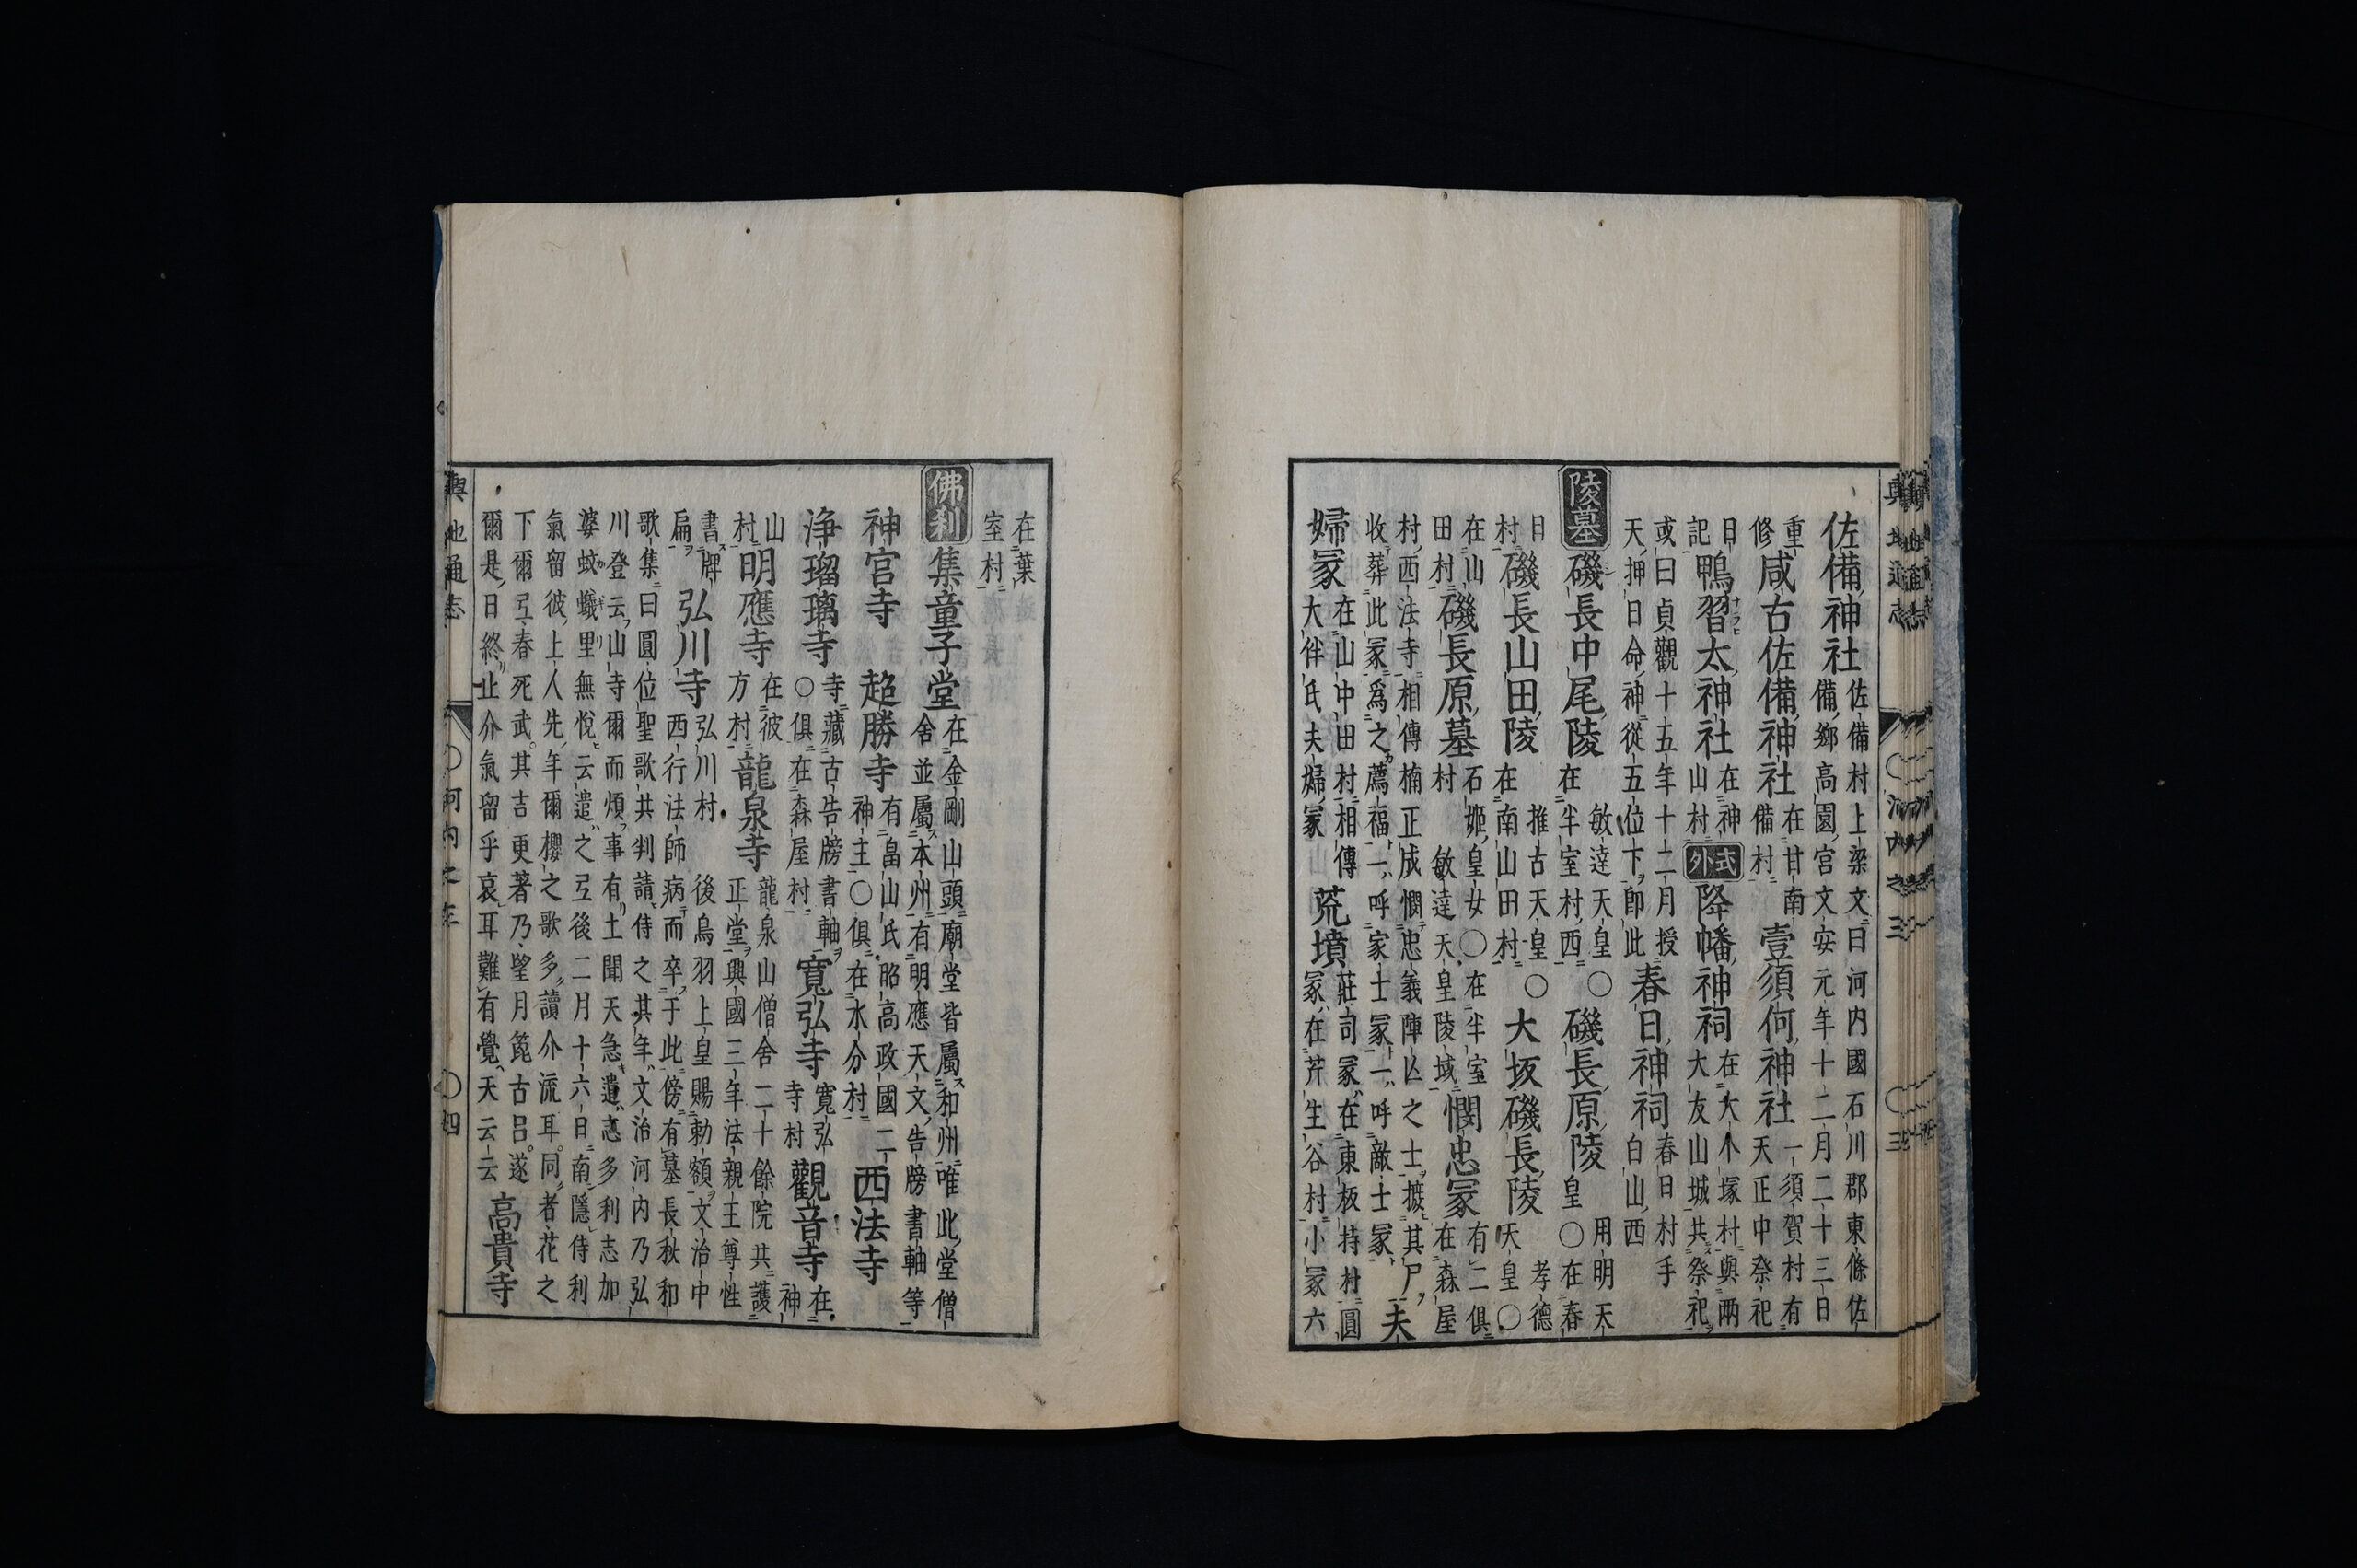 佐備神社
佐備村上梁文曰河内國石川郡東條佐
備鄉高園宮文安元年十二月二十三日
重
修
咸古佐備神社
在甘南
備村
壹須何神社
一須賀村有
天正中祭祀
日
記
鴨習太神社
在神
山村
式外
降幡神祠
在大小塚村與兩
大友山城共祭祀
或曰貞觀十五年十二月授
天押日命神從五位下即此
春日神祠
春日村手
白山西
陵墓
磯長中尾陵
敏達天皇〇
在半室村西
磯長原陵
用明天
皇〇在春
日
村
磯長山田陵
推古天皇〇
在南山田村
大坂磯長陵
孝德
天皇〇
在山
田村
磯長原墓
石姬皇女〇在半室
村敏達天皇陵域
憫忠冢
有二俱
在森屋
村西法寺相傳楠正成憫忠義陣亡之士摭其尸
收葬此冢爲之薦福一呼家士冢一呼敵士冢
夫
婦冢
在山中田村相傳
大伴氏夫婦冢
荒墳
莊司冢在東板持村圓
冢在芹生谷村小冢六
在葉
室村
佛刹
集童子堂
在金剛山頭廟堂皆屬和州唯此堂僧
舍並屬本州有明應天文告牓書軸等
神宮寺
超勝寺
有畠山氏昭高政國二
神主〇俱在水分村
西法寺
浄瑠璃寺
寺藏古告牓書軸
〇俱在森屋村
寬弘寺
寬弘
寺村
觀音寺
在
神
山
村
明應寺
在彼
方村
龍泉寺
龍泉山僧舍二十餘院共護
正堂興國三年法親王尊性
書牌
扁
弘川寺
弘川村後鳥羽上皇賜勅額文治中
西行法師病而卒于此傍有墓長秋和
歌集曰圓位聖歌共判請侍之其年文治河内乃弘
川登云山寺爾而煩事有土聞天急遣志多利志加
婆蚊蟻里無悅云遣之弖後二月十六日南隱侍利
氣留彼上人先年爾櫻之歌多讀介流耳同者花之
下爾弖春死武其吉更著乃望月箆古呂遂
爾是日終止介氣留乎哀耳難有覺天云云
高貴寺
輿地通志
〇河内之三
〇四